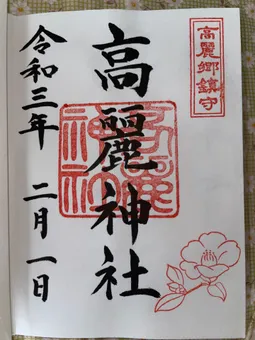 高麗郷鎮守
高麗神社
令和三年 二月一日